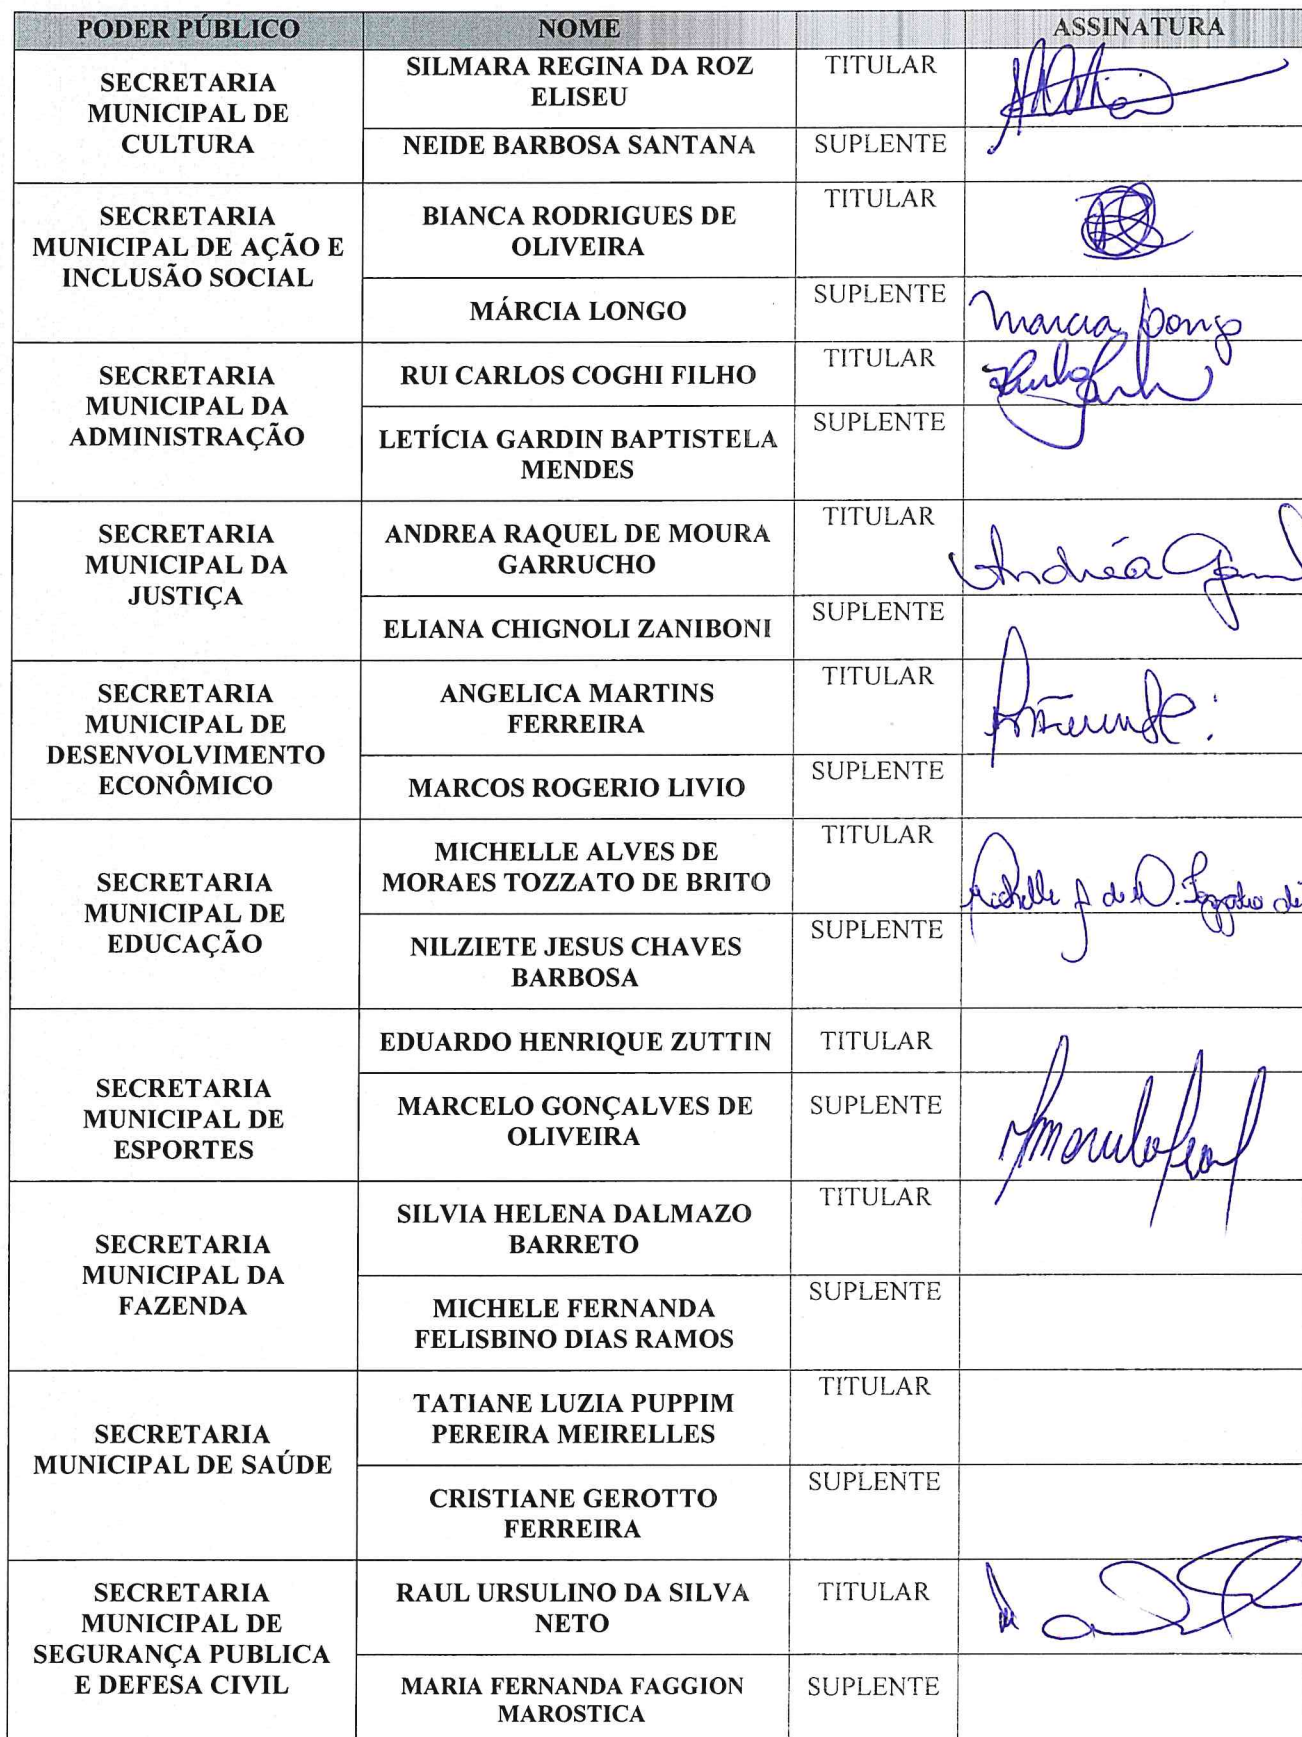 PODER PÚBLICO NOME ASSINATURA
SECRETARIA
MUNICIPAL DE
CULTURA
SILMARA REGINA DA ROZ
ELISEU
TITULAR
NEIDE BARBOSA SANTANA
SUPLENTE
SECRETARIA
MUNICIPAL DE AÇÃO E
INCLUSÃO SOCIAL
BIANCA RODRIGUES DE
OLIVEIRA
TITULAR
MÁRCIA LONGO
SUPLENTE
Marcia Longo
SECRETARIA
MUNICIPAL DA
ADMINISTRAÇÃO
RUI CARLOS COGHI FILHO
TITULAR
LETÍCIA GARDIN BAPTISTELA
MENDES
SUPLENTE
SECRETARIA
MUNICIPAL DA
JUSTIÇA
ANDREA RAQUEL DE MOURA
GARRUCHO
TITULAR
Andréa
ELIANA CHIGNOLI ZANIBONI
SUPLENTE
SECRETARIA
MUNICIPAL DE
DESENVOLVIMENTO
ECONÔMICO
ANGELICA MARTINS
FERREIRA
TITULAR
MARCOS ROGERIO LIVIO
SUPLENTE
SECRETARIA
MUNICIPAL DE
EDUCAÇÃO
MICHELLE ALVES DE
MORAES TOZZATO DE BRITO
TITULAR
Michelle A. de M. Tozzato de
NILZIETE JESUS CHAVES
BARBOSA
SUPLENTE
SECRETARIA
MUNICIPAL DE
ESPORTES
EDUARDO HENRIQUE ZUTTIN
TITULAR
MARCELO GONÇALVES DE
OLIVEIRA
SUPLENTE
SECRETARIA
MUNICIPAL DA
FAZENDA
SILVIA HELENA DALMAZO
BARRETO
TITULAR
MICHELE FERNANDA
FELISBINO DIAS RAMOS
SUPLENTE
SECRETARIA
MUNICIPAL DE SAÚDE
TATIANE LUZIA PUPPIM
PEREIRA MEIRELLES
TITULAR
CRISTIANE GEROTTO
FERREIRA
SUPLENTE
SECRETARIA
MUNICIPAL DE
SEGURANÇA PUBLICA
E DEFESA CIVIL
RAUL URSULINO DA SILVA
NETO
TITULAR
MARIA FERNANDA FAGGION
MAROSTICA
SUPLENTE